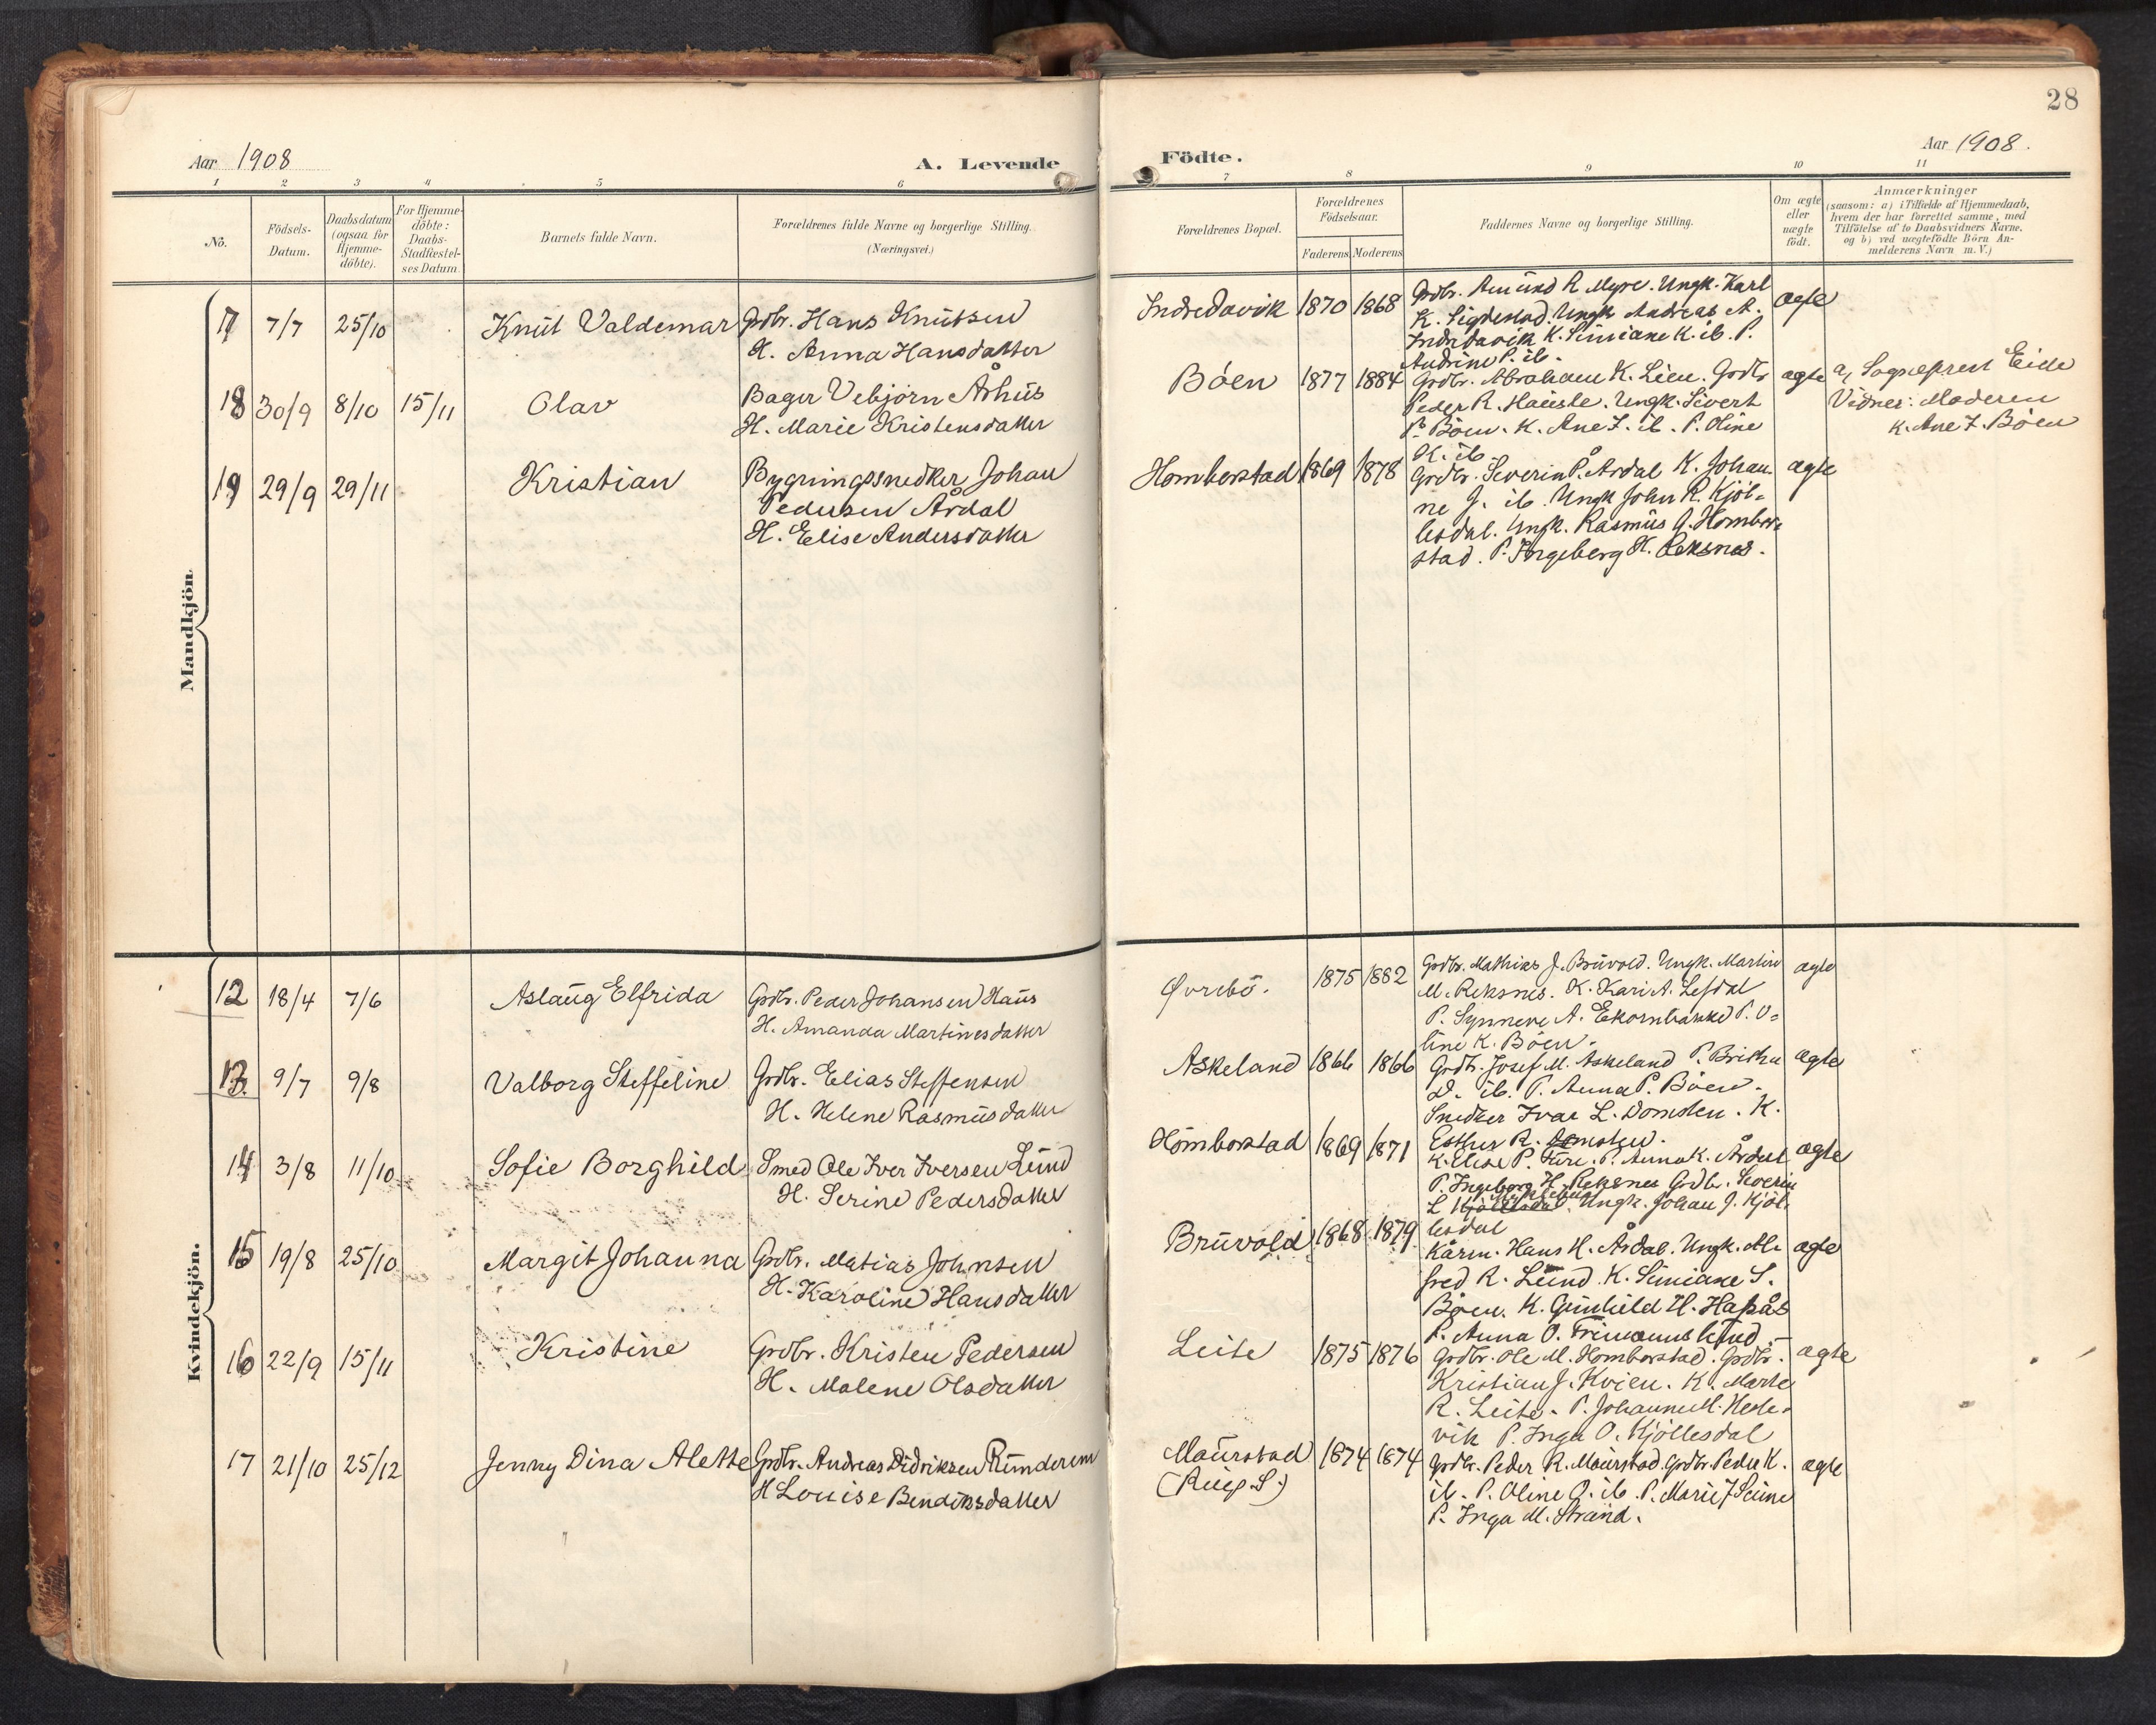 28
Aar 1908
A. Levende
Födte.
Aar 1908.
1 2 3 4 5 6
7 8 9 10 11
No.
Födsels-
Datum.
Daabsdatum
(ogsaa for
Hjemme-
döbte).
For Hjemme-
döbte:
Daabs-
Stadfæstel-
ses Datum.
Barnets fulde Navn.
Forældrenes fulde Navne og borgerlige Stilling.
(Næringsvei.)
Forældrenes Bopæl.
Forældrenes
Födselsaar.
Faderens Moderens
Faddernes Navne og borgerlige Stilling.
Om ægte
eller
uægte
födt.
Anmærkninger
(saasom: a) i Tilfælde af Hjemmedaab,
hvem der har forrettet samme, med
Tilföielse af to Daabsvidners Navne,
og b) ved uægtefödte Börn An-
melderens Navn m. V.)
Mandkjön.
17 7/7 25/10 Knut Valdemar
Grdbr. Hans Knutsen
H. Anna Hansdatter
Indredavik 1870 1868
Grdbr. Amund R. Myre. Ungk. Karl
K. Sigdestad. Ungk. Andreas A.
Indredavik K. Simiane K. ib. P.
Andrine P. ib.
ægte
18 30/9 8/10 15/11 Olav
Bager Vebjørn Århus
H. Marie Kristensdatter
Böen 1877 1884
Grdbr. Abraham K. Lien. Grdbr
Peder R. Hausle. Ungk. Sivert
P. Böen. K. Ane J. ib. P. Oline
K. ib
ægte
a, Sogneprest Eide
Vidner: Moderen
K. Ane J. Böen
19 29/9 29/11 Kristian
Bygningssnedker Johan
Pedersen Årdal
H. Elise Andersdatter
Homborstad 1869 1878
Grdbr. Severin P. Årdal K. Johan-
ne J. ib. Ungk John R. Kjöl-
lesdal. Ungk. Rasmus A. Hombor-
stad. P. Ingeberg H. Reksnes.
ægte
Kvindekjön.
12 18/4 7/6 Aslaug Elfrida
Grdbr. Peder Johansen Haus
H. Amanda Martinesdatter
Øvrebö. 1875 1882
Grdbr. Mathias J. Bruvold. Ungk. Martin
M. Reksnes. K. Kari A. Lefdal
P. Synneve A. Ekornbakke P. O-
line K. Böen.
ægte
13 9/7 9/8 Valborg Steffeline
Grdbr. Elias Steffensen
H. Helene Rasmusdatter
Askeland 1866 1866
Grdbr. Josef M. Askeland P. Brithe
D. ib. P. Anna P. Böen.
Snedker Ivar L. Domsten. K.
Esther R. Domsten.
ægte
14 3/8 11/10 Sofie Borghild
Smed Ole Iver Iversen Lund
H. Serine Pedersdatter
Homborstad 1869 1871
K. Elise P. Fure. P. Anna K. Årdal
P. Ingeborg H. Reksnes Grdbr. Severin
L Myklebust. Ungk. Johan J. Kjöl-
lesdal
ægte
15 19/8 25/10 Margit Johanna
Grdbr. Matias Johnsen
H. Karoline Hansdatter
Bruvold 1868 1879
Kårm. Hans H. Årdal. Ungk. Al-
fred R. Lund. K. Simiane S.
Böen. K. Gunhild H. Hapås
P. Anna O. Frimannslund.
ægte
16 22/9 15/11 Kristine
Grdbr. Kristen Pedersen
H. Malene Olsdatter
Leite 1875 1876
Grdbr. Ole M. Homborstad. Grdbr.
Kristian J. Kvien. K. Marte
R. Leite. P. Johanne M. Hesle-
vik P. Inga O. Kjöllesdal
ægte
17 21/10 25/12 Jenny Dina Alette
Grdbr. Andreas Didriksen Runderem
H Louise Bendiksdatter
Maurstad 1874 1874
Grdbr. Peder R. Maurstad. Grdbr. Peder K.
ib. P. Oline O. ib. P. Marie J
P. Inga M. Strand.
ægte